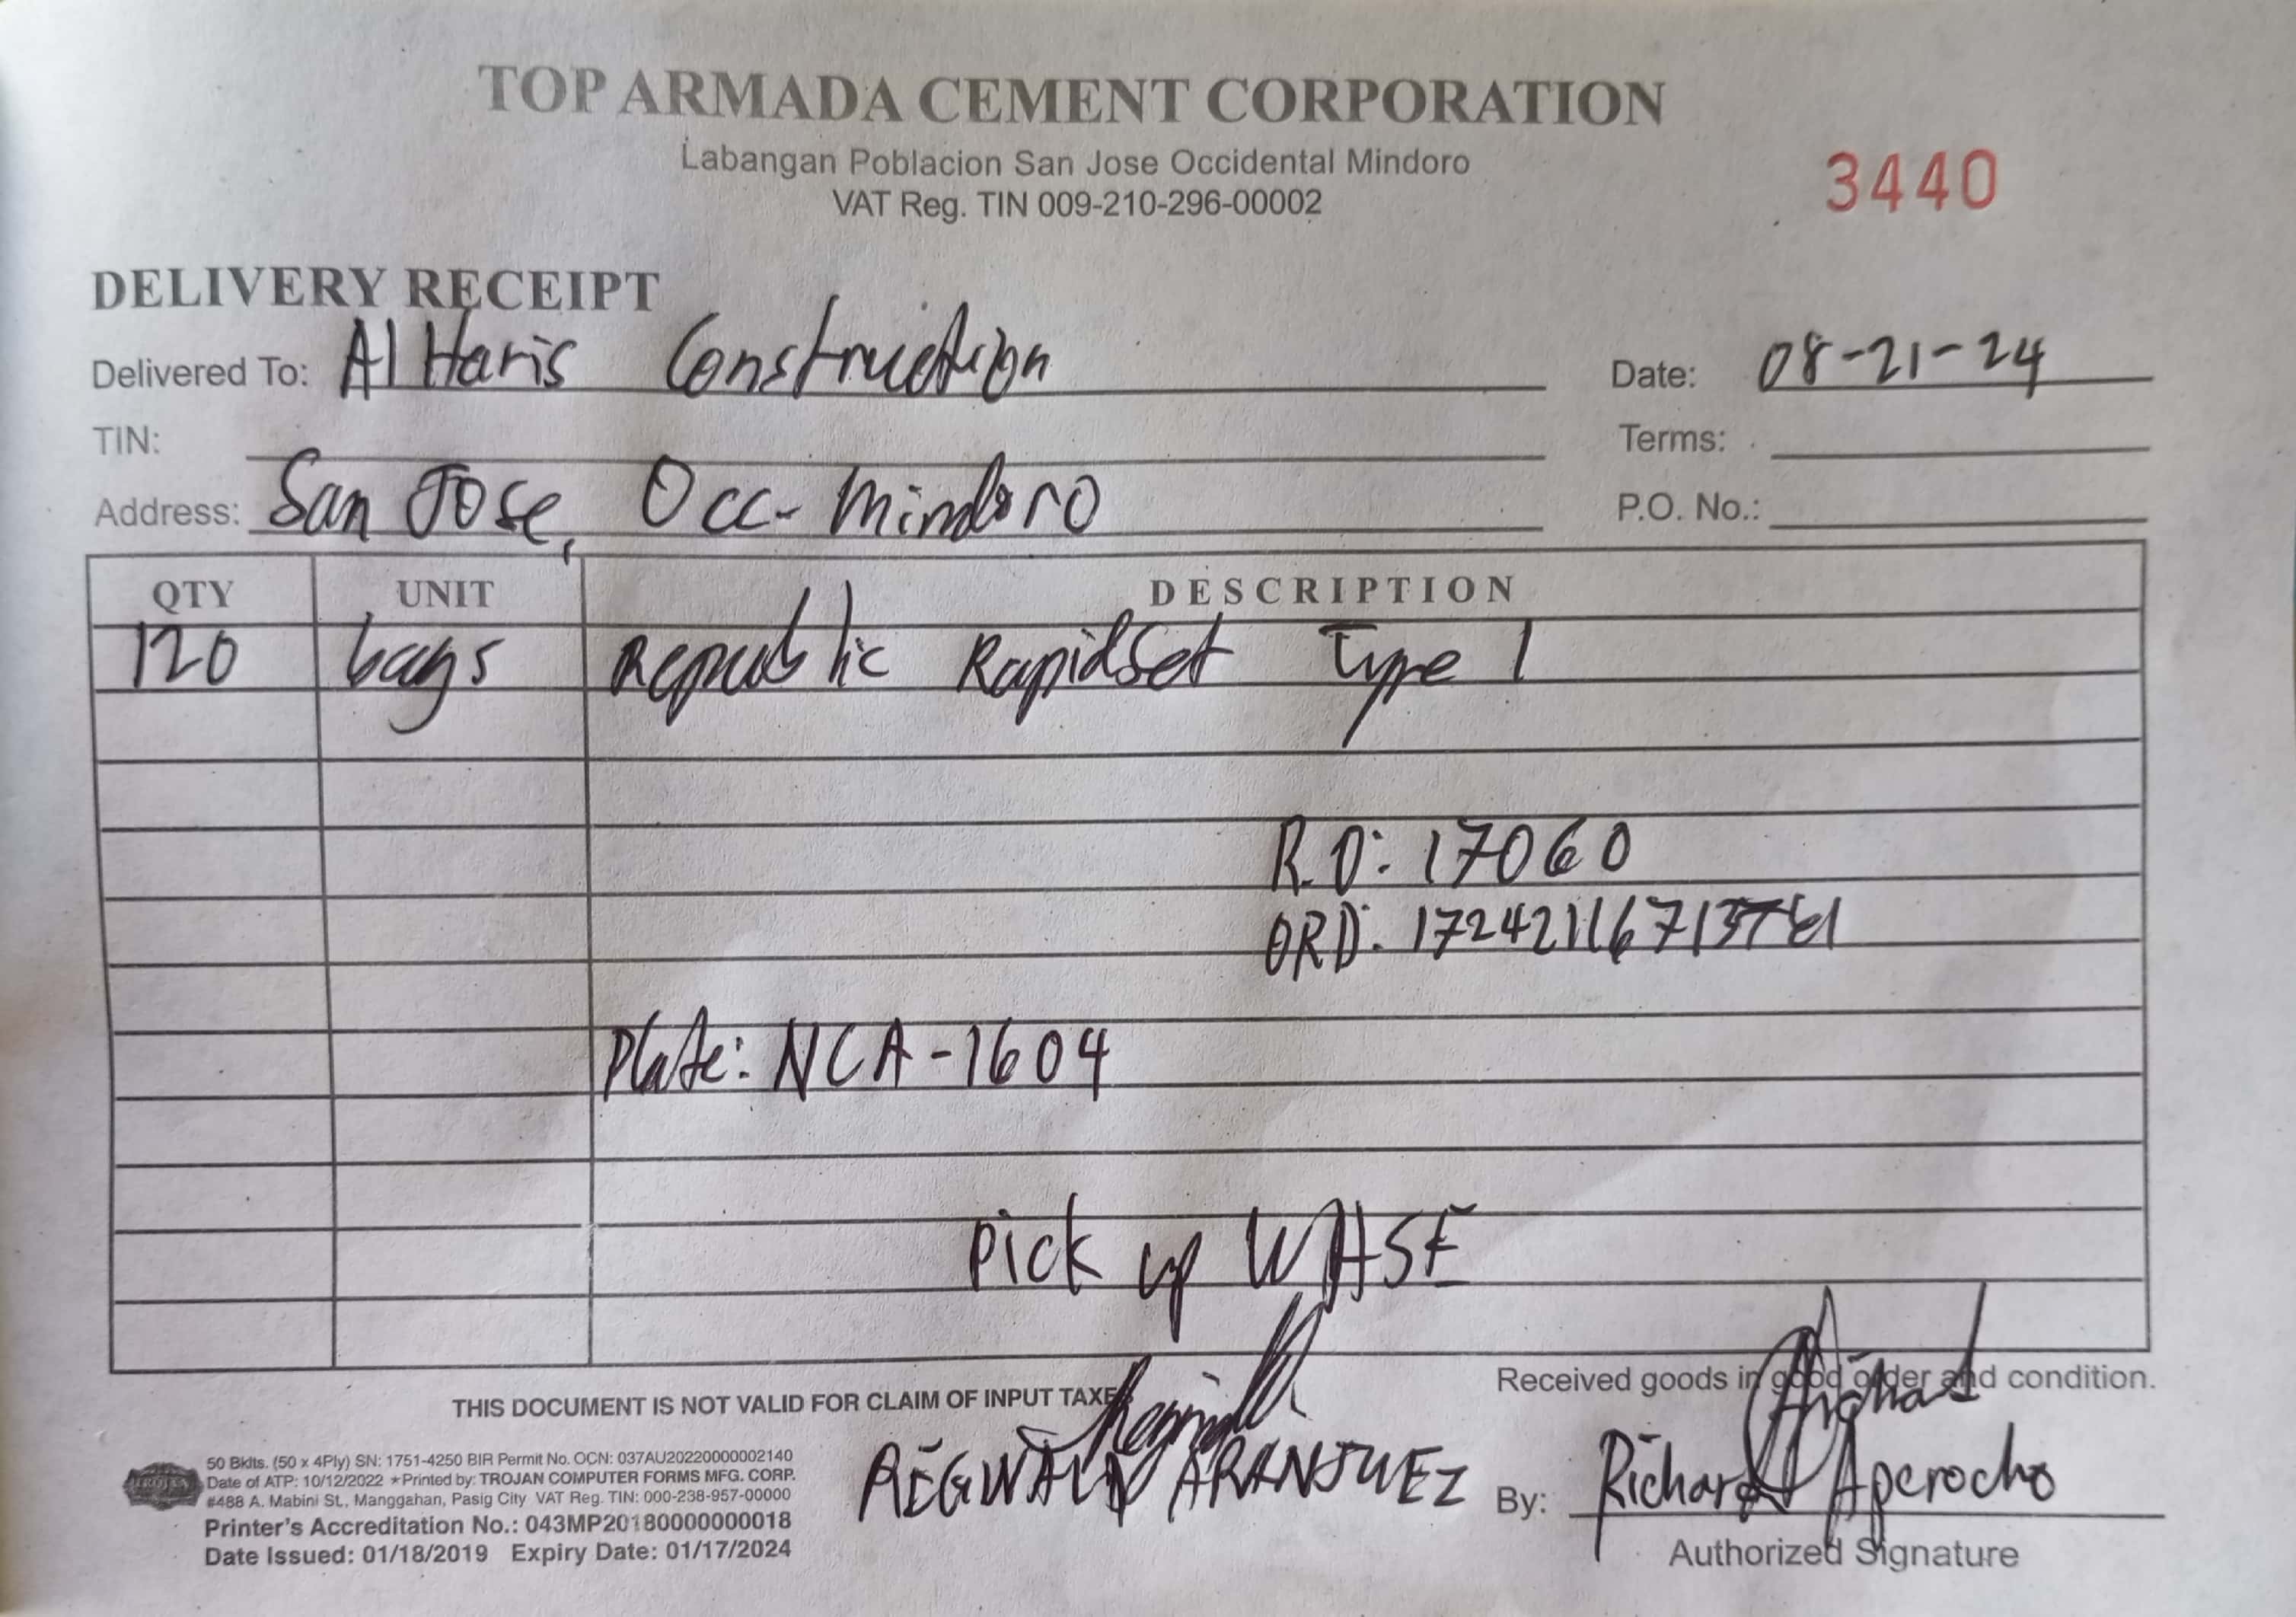 TOP ARMADA CEMENT CORPORATION
Labangan Poblacion San Jose Occidental Mindoro
VAT Reg. TIN 009-210-296-00002
3440
DELIVERY RECEIPT
Delivered To: Al Haris Construction
Date: 08-21-24
TIN:
Terms:
Address: San Jose, Occ- Mindoro
P.O. No.:
QTY UNIT DESCRIPTION
120 bags Republic Rapidset Type 1
R.O: 17060
ORD:
Plate: NCA-1604
Pick up WHSE
Received goods in good order and condition.
THIS DOCUMENT IS NOT VALID FOR CLAIM OF INPUT TAXES
50 Bklts. (50 x 4Ply) SN: 1751-4250 BIR Permit No. OCN: 037AU20220000002140
Date of ATP: 10/12/2022 *Printed by: TROJAN COMPUTER FORMS MFG. CORP.
#488 A. Mabini St., Manggahan, Pasig City VAT Reg. TIN: 000-238-957-00000
Printer's Accreditation No.: 043MP20180000000018
Date Issued: 01/18/2019 Expiry Date: 01/17/2024
TROJAN
ARANJUEZ
By: Richard Aperocho
Authorized Signature